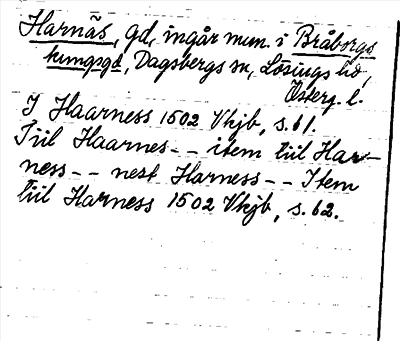 Harnäs, gd, ingår num. i Bråborgs
kungsgd, Dagsbergs sn, Lösings hd,
Österg. l.
J Haarness 1502 Vhjb, s. 61.
Tiil Haarnes - - item tiil Har-
ness - - nest Harness - - Item
tiil Harness 1502 Vhjb, s. 62.